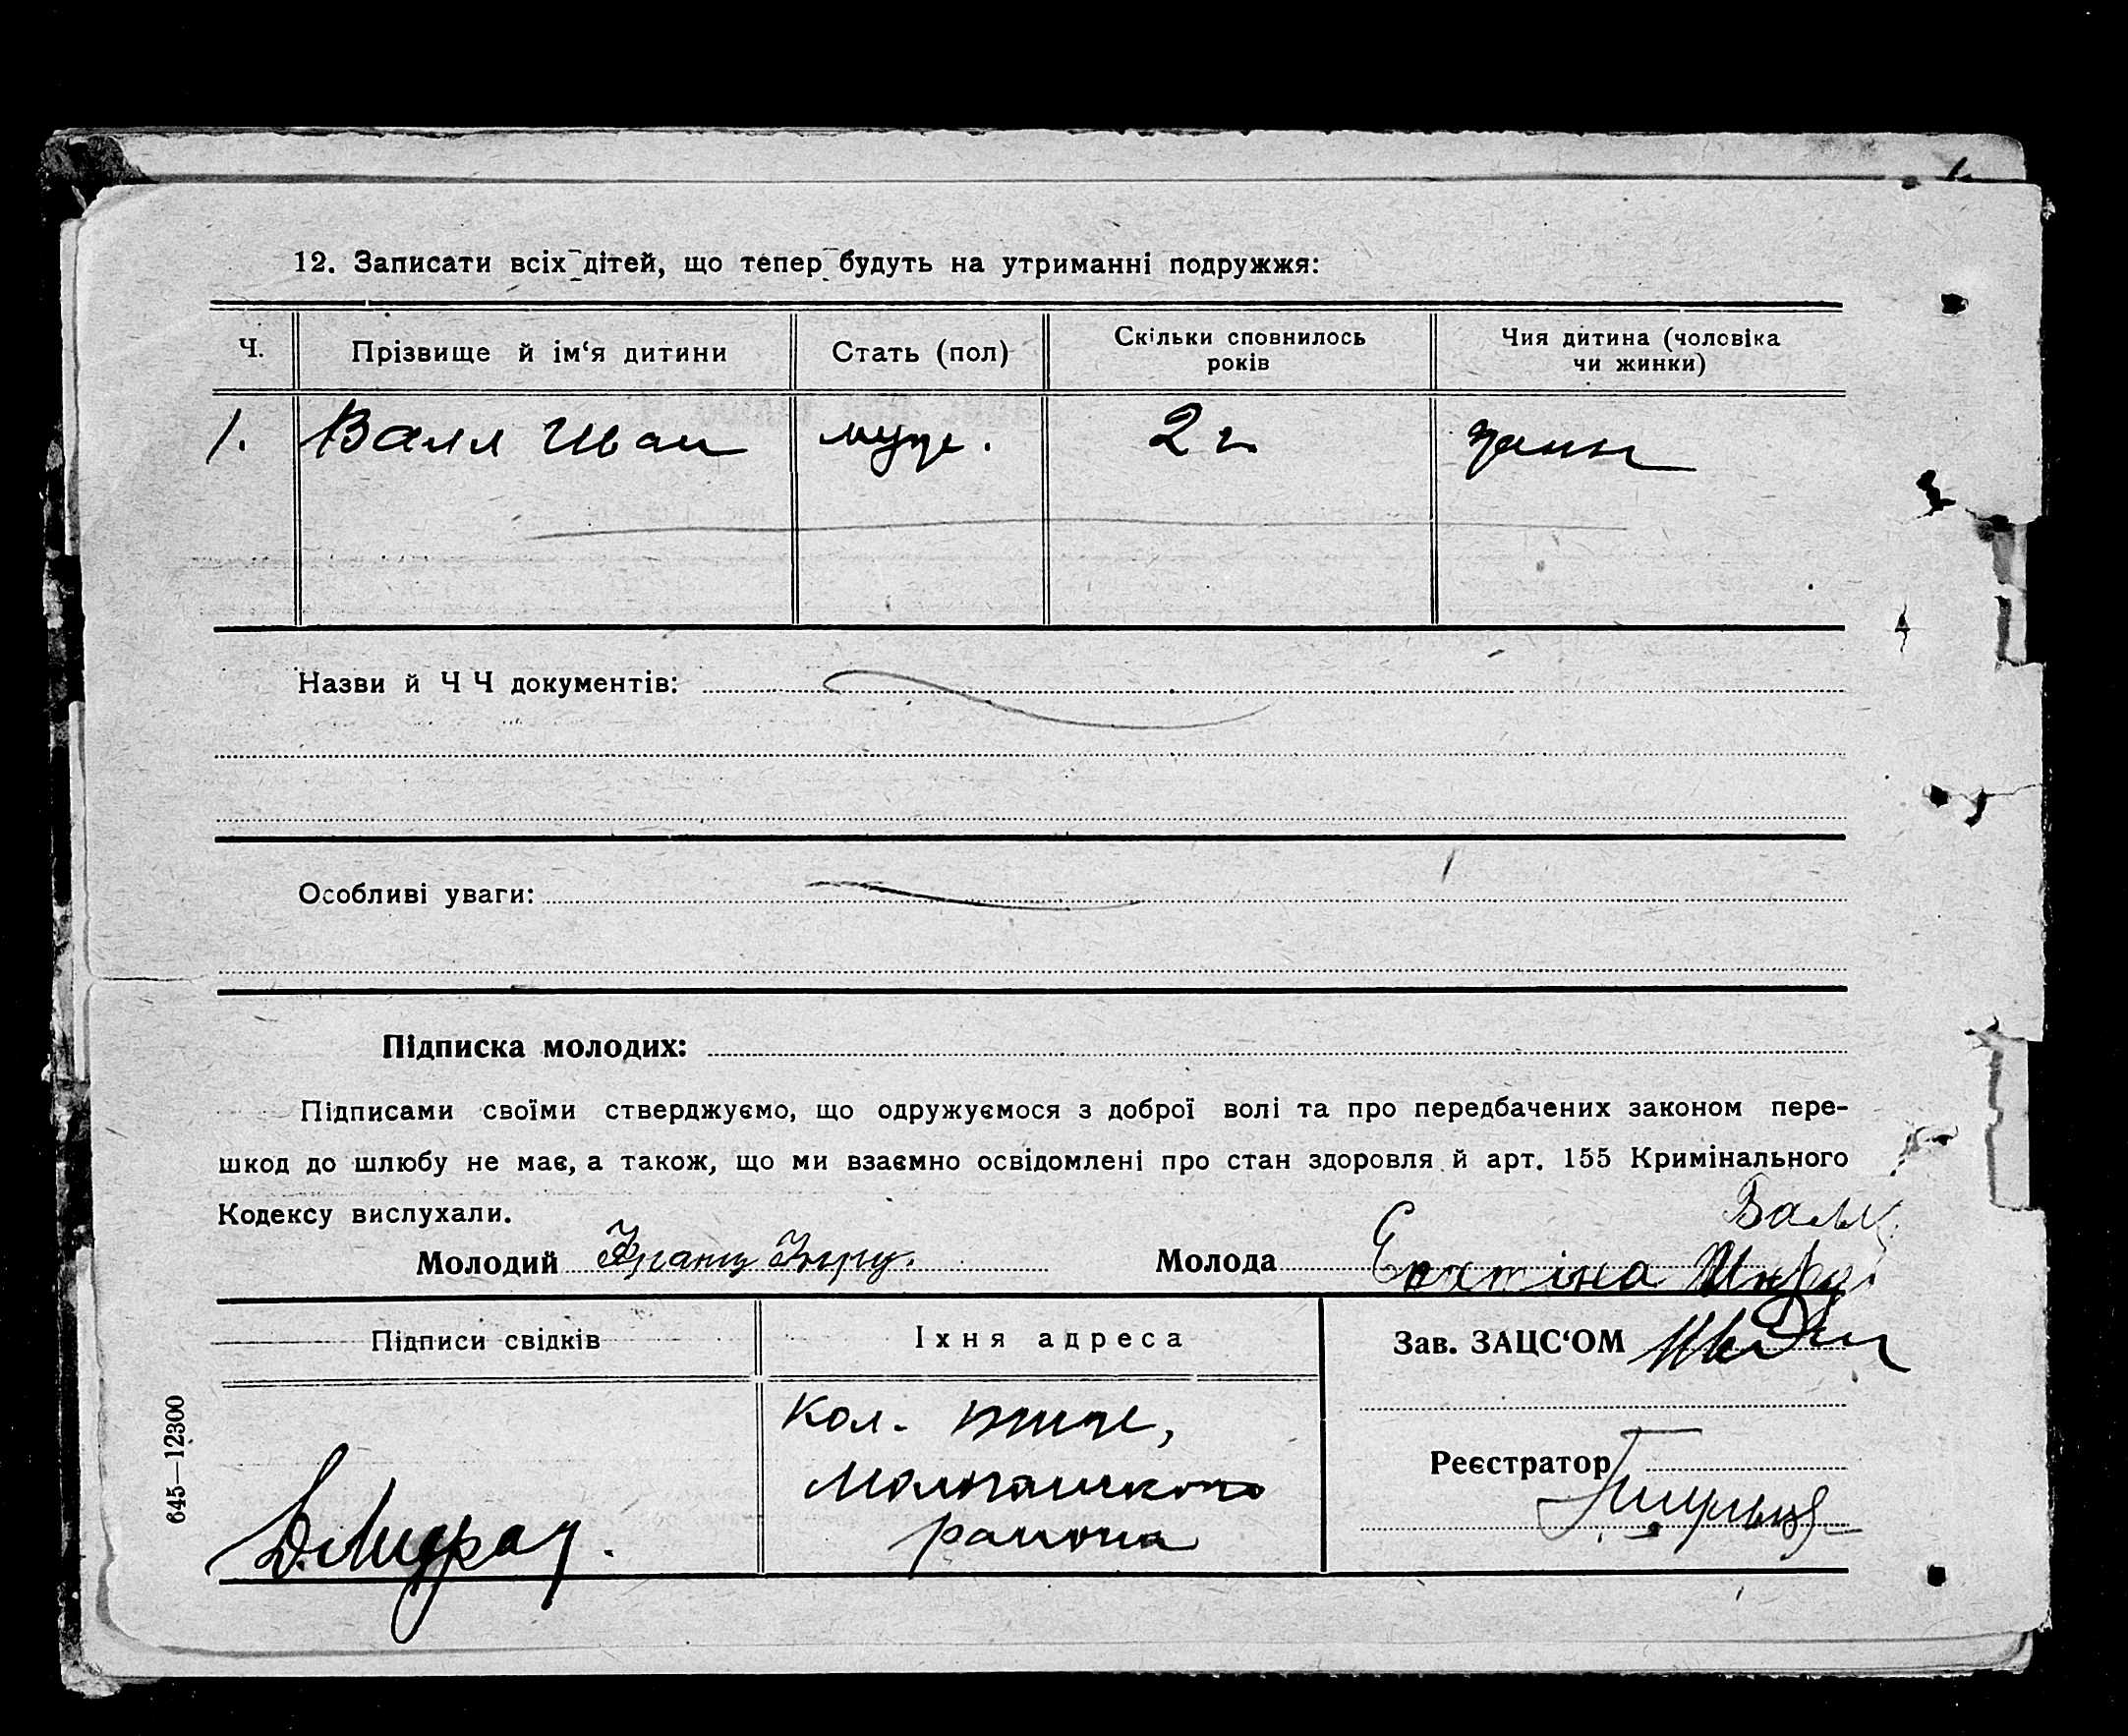 12. Записати всіх дітей, що тепер будуть на утриманні подружжя:
Ч. Прізвище й ім‘я дитини Стать (пол) Скільки сповнилось років Чия дитина (чоловіка чи жинки)
1. Валл Иван муж. 2 г.
Назви й Ч Ч документів:
Особливі уваги:
Підписка молодих:
Підписами своїми стверджуємо, що одружуємося з доброї волі та про передбачених законом пере-
шкод до шлюбу не має, а також, що ми взаємно освідомлені про стан здоровля й арт. 155 Кримінального
Кодексу вислухали.
Валл
Молодий Франц Молода
Підписи свідків Їхня адреса Зав. ЗАЦС‘ОМ
Кол.
Молочанского
района
Реєстратор
645—12300